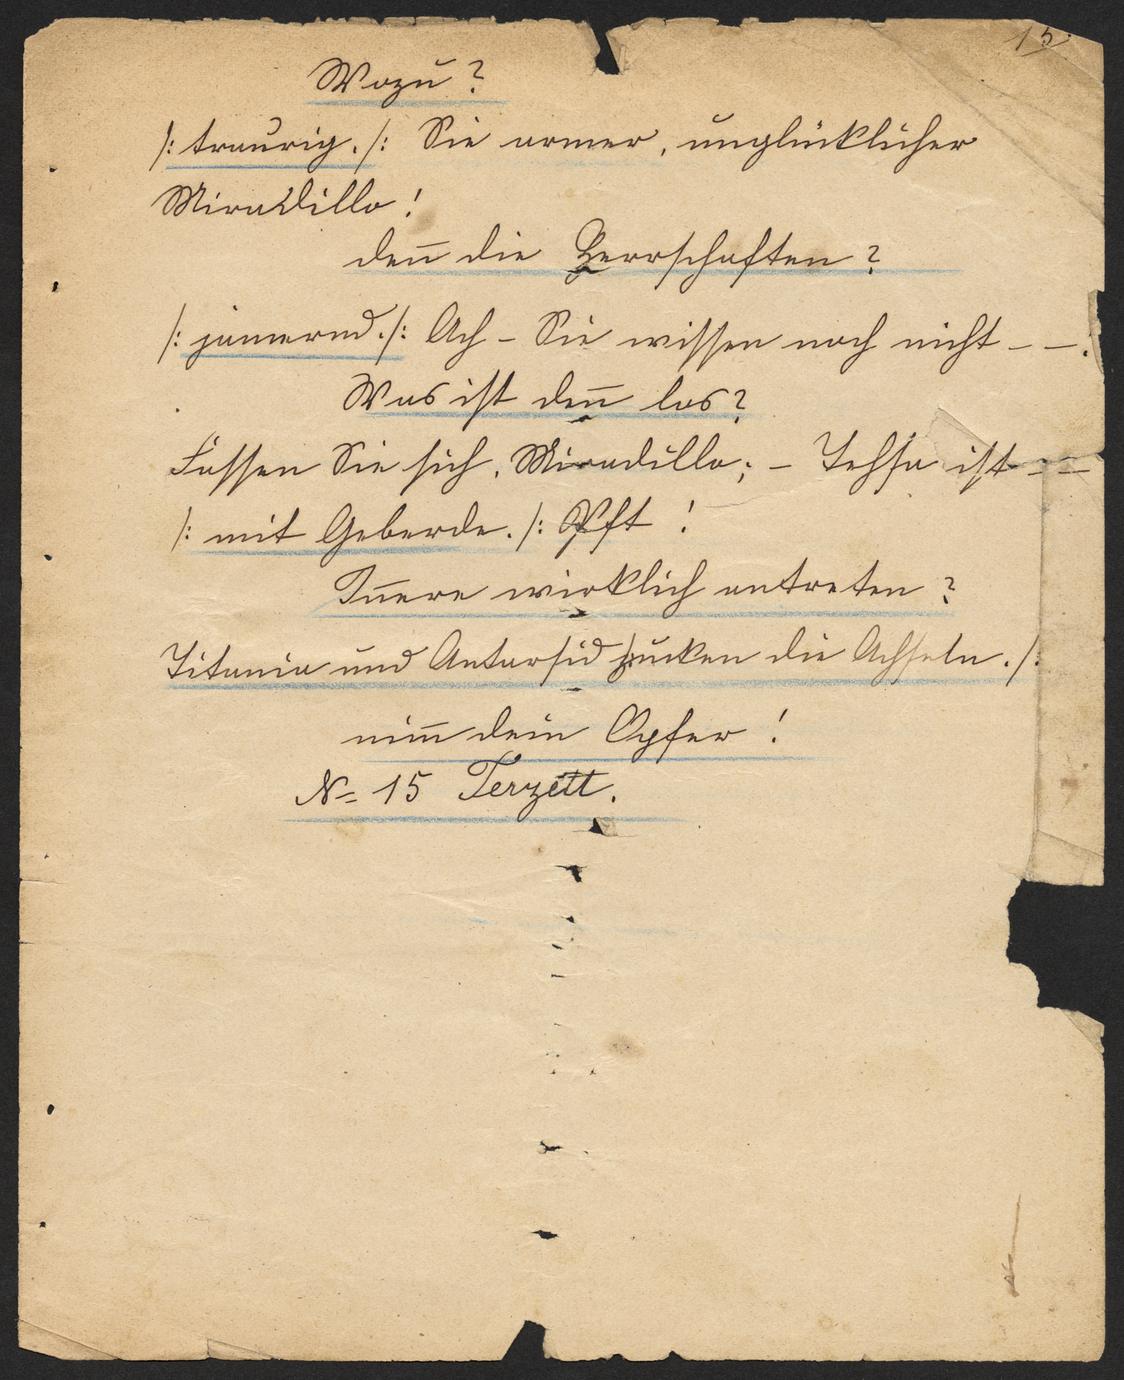 15.
Wozu?
/: traurig. /: Sie armer, unglücklicher
Miradillo!
deñ die Herrschaften?
/: jam̄ernd. /: Ach – Sie wissen noch nicht – –.
Was ist deñ los?
Fassen Sie sich, Miradillo; – Tehsa ist – –
/: mit Geberde. /: Pfft!
Iñere wirklich antreten?
Titania und Antarsid zucken die Achseln. /:
nim̄ dein Opfer!
No 15 Terzett.